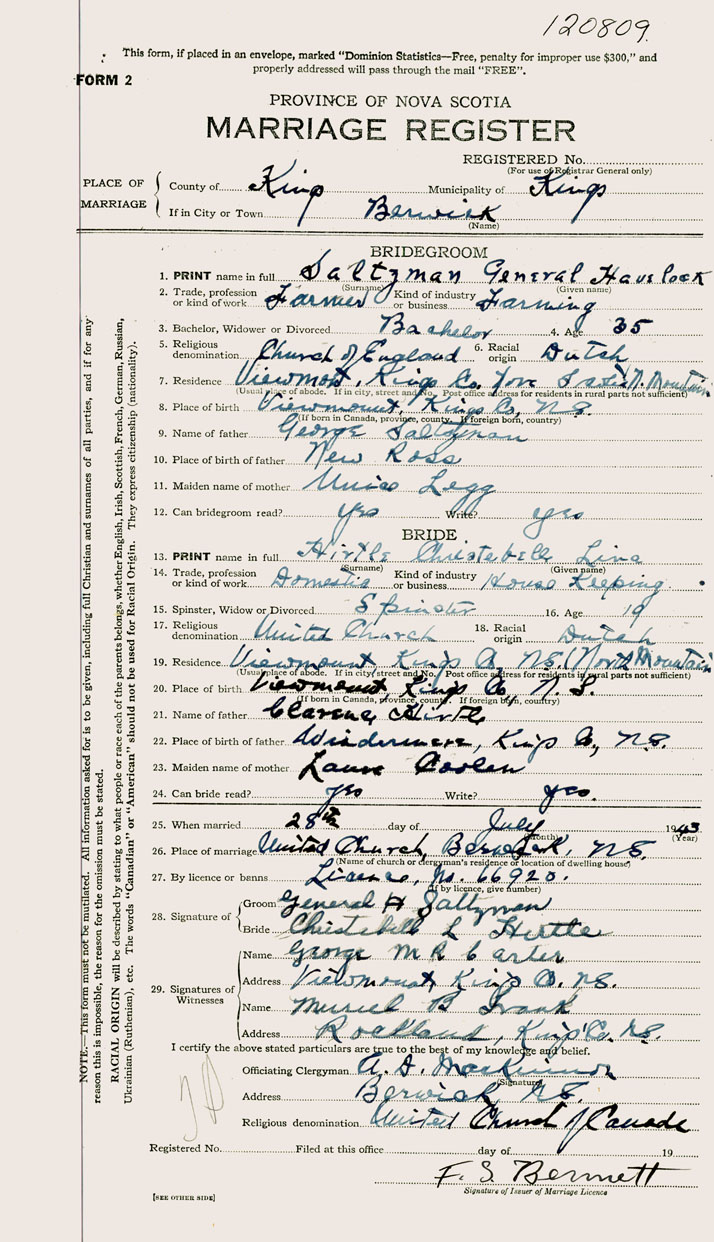 120809.
This form, if placed in an envelope, marked "Dominion Statistics—Free, penalty for improper use $300," and
properly addressed will pass through the mail "FREE".
FORM 2
PROVINCE OF NOVA SCOTIA
MARRIAGE REGISTER
REGISTERED No.
(For use of Registrar General only)
PLACE OF MARRIAGE
County of Kings Municipality of Kings
If in City or Town Berwick
(Name)
BRIDEGROOM
1. PRINT name in full Saltzman General Havelock
(Surname) (Given name)
2. Trade, profession or kind of work Farmer Kind of industry or business Farming
3. Bachelor, Widower or Divorced Bachelor 4. Age 35
5. Religious denomination Church of England 6. Racial origin Dutch
7. Residence Viewmount, Kings Co. N. Mountain
(Usual place of abode. If in city, street and No. Post office address for residents in rural parts not sufficient)
8. Place of birth Viewmount, Kings Co, N.S.
(If born in Canada, province, county. If foreign born, country)
9. Name of father George Saltzman
10. Place of birth of father New Ross
11. Maiden name of mother Unice Legg
12. Can bridegroom read? yes Write? yes
BRIDE
13. PRINT name in full Hirtle Christebell Lina
(Surname) (Given name)
14. Trade, profession or kind of work Domestic Kind of industry or business House Keeping
15. Spinster, Widow or Divorced Spinster 16. Age 19
17. Religious denomination United Church 18. Racial origin Dutch
19. Residence Viewmount, Kings Co, N.S. (North Mountain
(Usual place of abode. If in city street and No. Post office address for residents in rural parts not sufficient)
20. Place of birth Viewmount Kings Co, N.S.
(If born in Canada, province, county. If foreign born, country)
21. Name of father Clarence Hirtle
22. Place of birth of father Windermere, Kings Co, N.S.
23. Maiden name of mother Laura Coolen
24. Can bride read? yes Write? yes.
25. When married 28th day of July 1943
(month) (Year)
26. Place of marriage United Church, Berwick, N.S.
(Name of church or clergyman's residence or location of dwelling house)
27. By licence or banns Licence, No. 66920.
(If by licence, give number)
28. Signature of
Groom General H Saltzman
Bride Christebell L Hirtle
29. Signatures of Witnesses
Name George M R Carter
Address Viewmount Kings Co. N.S.
Name Muriel B
Address Rockland, Kings Co. N.S.
I certify the above stated particulars are true to the best of my knowledge and belief.
Officiating Clergyman A. D. MacKinnon
(Signature)
Address Berwick N.S.
Religious denomination United Church of Canada
Registered No. Filed at this office day of 19
F. S. Bennett
Signature of Issuer of Marriage Licence
[SEE OTHER SIDE]
NOTE.—This form must not be mutilated. All information asked for is to be given, including full Christian and surnames of all parties, and if for any
reason this is impossible, the reason for the omission must be stated.
RACIAL ORIGIN will be described by stating to what people or race each of the parents belongs, whether English, Irish, Scottish, French, German, Russian,
Ukrainian (Ruthenian), etc. The words "Canadian" or "American" should not be used for Racial Origin. They express citizenship (nationality).